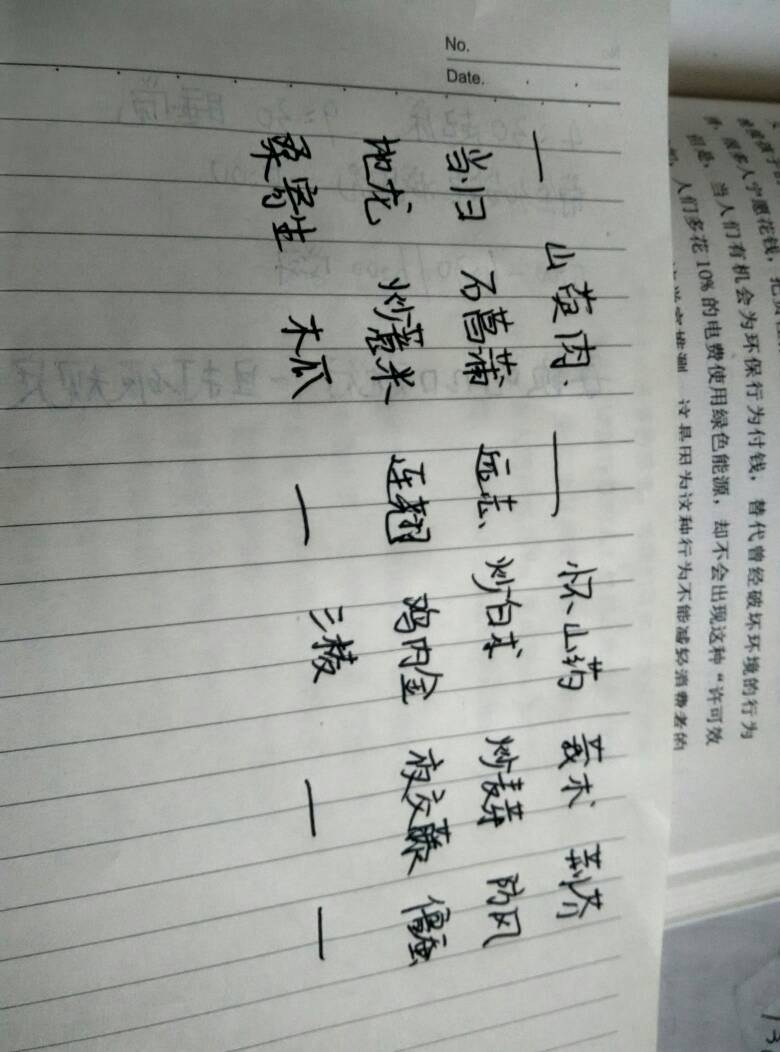 很多人宁愿花钱，
但是，当人们有机会为环保行为付钱，替代曾经破坏环境的行为
人们多花10%的电费使用绿色能源，却不会出现这种“许可效
这是因为这种行为不能减轻消费者的
No.
Date.
— 山萸肉. — 怀山药 莪术 荆芥
当归 石菖蒲 远志 炒白术 炒麦芽 防风
地龙 炒薏米 连翘 鸡内金 夜交藤 僵蚕
桑寄生 木瓜 — 三棱 — —